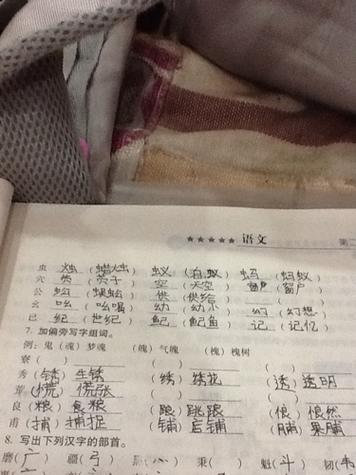 ★★★★★ 语文 第二
虫 烛 (蜡烛) 蚁 (蚂蚁) 蚂 (蚂蚁)
穴 (天空) 窗户
公 蚣 (蜈蚣) 供 (供给)
幺 吆 (吆喝) 幼 (幼小) 幻 (幻想)
己 纪 (世纪) 鱾 记 (记忆)
7. 加偏旁写字组词。
例: 鬼 (魂) 梦魂 (魄) 气魄 (槐) 槐树
寮 ( )
秀 (锈) 生锈 (绣) 绣花 (透) 透明
荒 (慌) 慌张
良 (粮) 食粮 (踉) (悢) 悢然
甫 (捕) 捕捉 (铺) 店铺 (脯) 果脯
8. 写出下列汉字的部首。
磨 (广) 疆 (弓) 乘 ( 魁 (斗) 韧 (韦